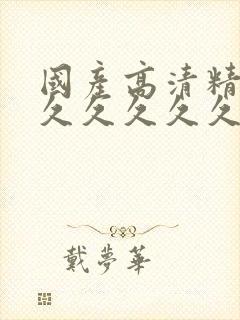 國產高清精
久久久久久
戴夢華